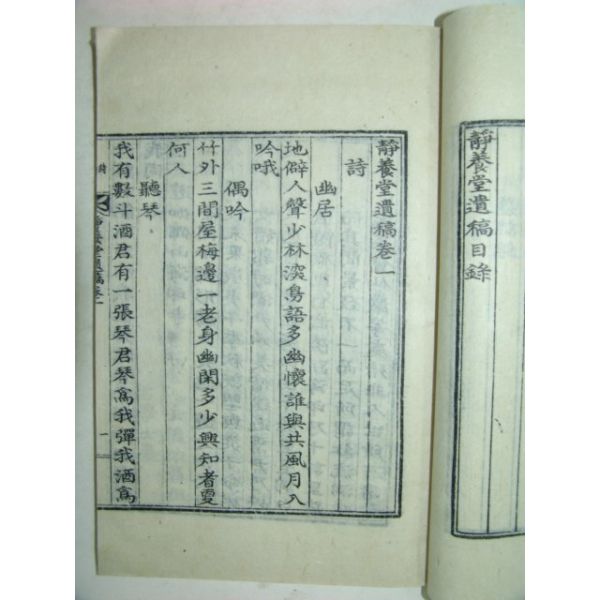 靜養堂遺稿目錄
靜養堂遺稿卷一
詩
幽居
地僻人聲少林深鳥語多幽懷誰與共風月入
吟哦
偶吟
竹外三間屋梅邊一老身幽閑多少興知者更
何人
聽琴
我有數斗酒君有一張琴君琴爲我彈我酒爲
詩
靜養堂遺稿卷一
一